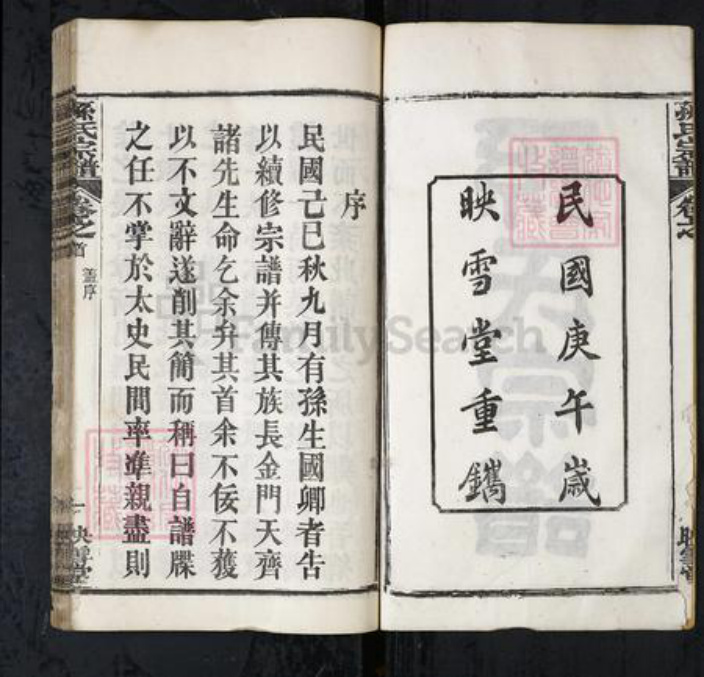 民國庚午嵗
映雪堂重鐫
孫氏宗譜
卷之
序
民國己巳秋九月有孫生國卿者告
以續修宗譜并傳其族長金門天齊
諸先生命乞余弁其首余不佞不獲
以不文辭遂削其簡而稱曰自譜牒
之任不掌於太史民間率準親盡則
孫氏宗譜
卷之首
序
一
映雪堂
FamilySearch